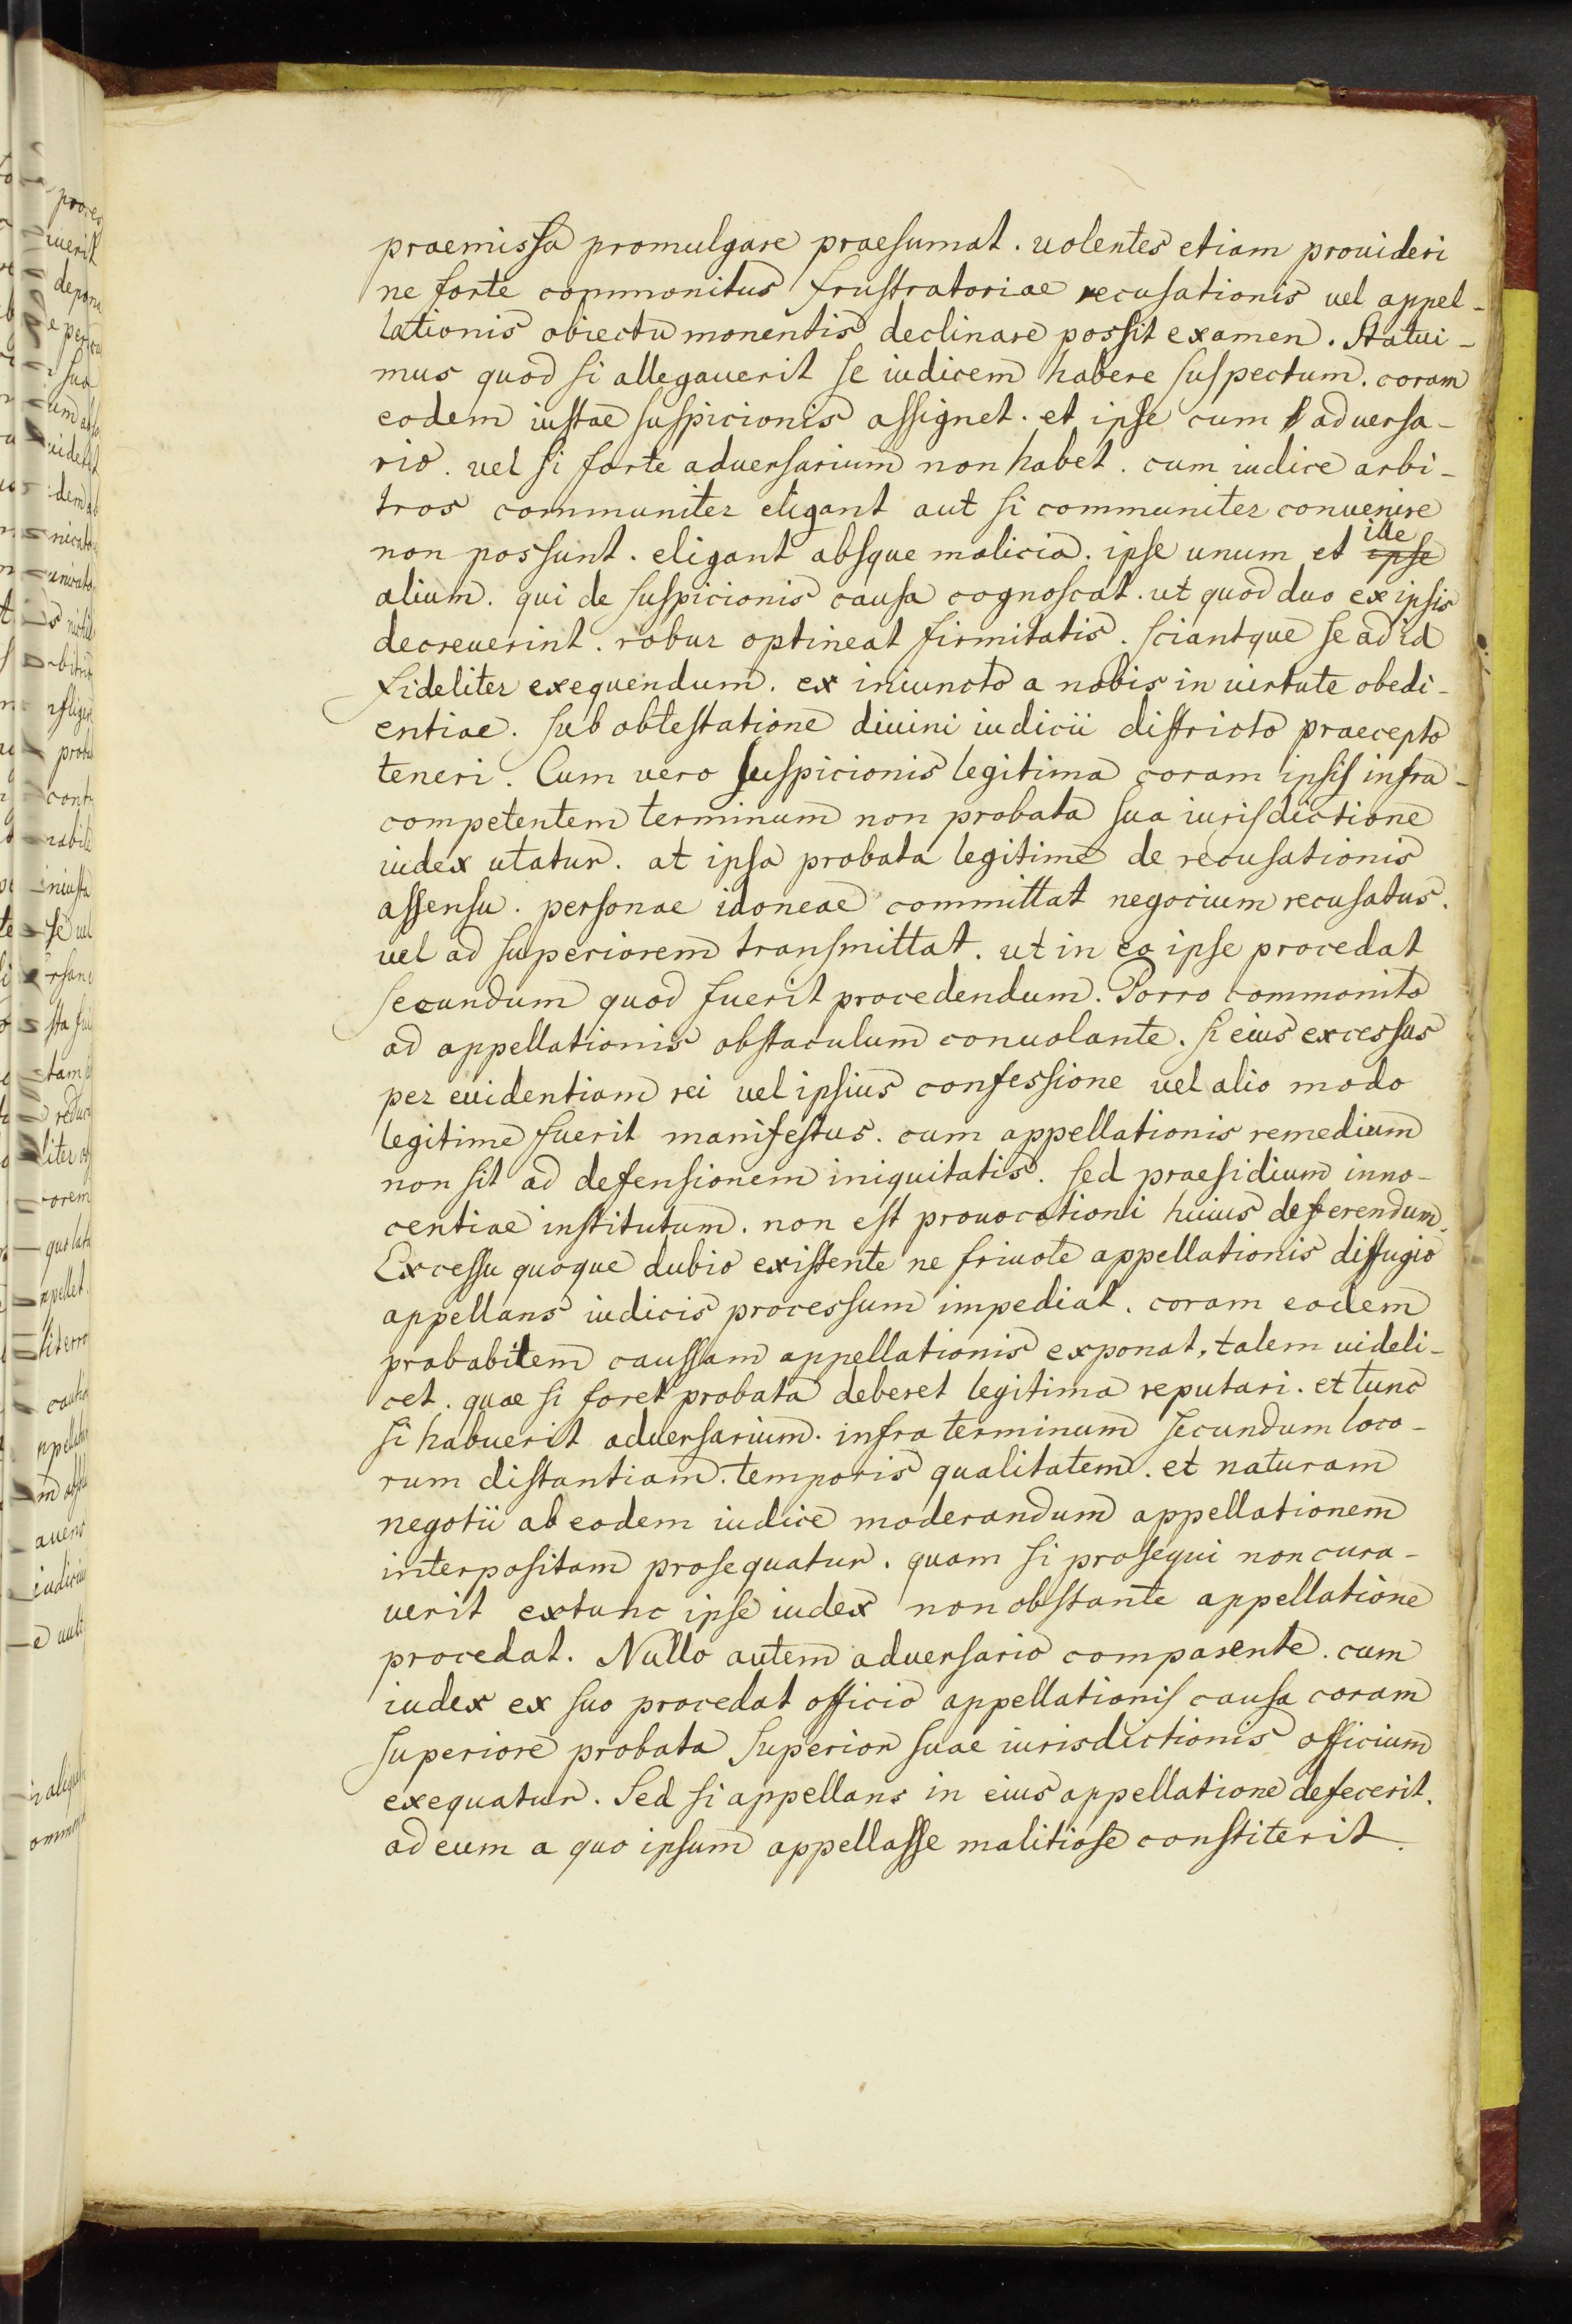 praemissa promulgare praesumat. uolentes etiam prouideri
ne forte commonitus frustratoriae recusationis uel appel-
lationis obiectu monentis declinare possit examen. Statui-
mus quod si allegauerit se iudicem habere suspectum. coram
eodem iustae suspicionis assignet. et ipse cum aduersa-
rio. uel si forte aduersarium non habet. cum iudice arbi-
tros communiter eligant aut si communiter conuenire
non possunt. eligant absque malicia. ipse unum et ipse ille
alium. qui de suspicionis causa cognoscat. ut quod duo ex ipsis
decreuerint. robur optineat firmitatis. sciantque se ad id
fideliter exequendum. ex iniuncto a nobis in uirtute obedi-
entiae. sub obtestatione diuini iudicii districto praecepto
teneri. Cum vero suspicionis legitima coram ipsis infra-
competentem terminum non probata sua iurisdictione
iudex utatur. at ipsa probata legitime de recusationis
assensu. personae idoneae committat negocium recusatus.
vel ad superiorem transmittat. ut in eo ipse procedat
secundum quod fuerit procedendum. Porro commonito
ad appellationis obstaculum conuolante. si eius excessus
per euidentiam rei vel ipsius confessione vel alio modo
legitime fuerit manifestus. cum appellationis remedium
non sit ad defensionem iniquitatis. sed praesidium inno-
centiae institutum. non est prouocationi huius deferendum.
Excessu quoque dubio existente ne friuole appellationis diffugio
appellans iudicis processum impediat. coram eodem
probabilem caussam appellationis exponat, talem uideli-
cet. quae si foret probata deberet legitima reputari. et tunc
si habuerit aduersarium. infra terminum secundum loco-
rum distantiam. temporis qualitatem. et naturam
negotii ab eodem iudice moderandum appellationem
interpositam prosequatur. quam si prosequi non cura-
uerit extunc ipse iudex non obstante appellatione
procedat. Nullo autem aduersario comparente. cum
iudex ex suo procedat officio appellationis causa coram
superiore probata superior suae iurisdictionis officium
exequatur. Sed si appellans in eius appellatione defecerit.
ad eum a quo ipsum appellasse malitiose constiterit.